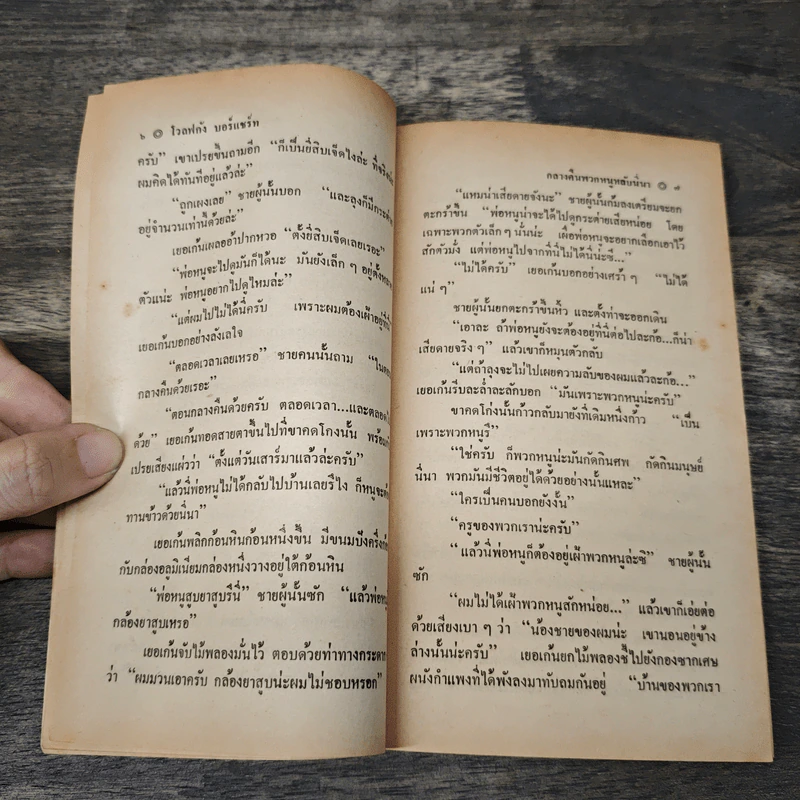 ๖ ๏ โวลฟกัง บอร์แชร์ท
ครับ” เขาเปรยขึ้นถามอีก “ก็เป็นยี่สิบเจ็ดไงล่ะ
ผมคิดได้ทันทีอยู่แล้วล่ะ”
“ถูกเผงเลย” ชายผู้นั้นบอก “และลุงก็มีกระต่าย
อยู่จำนวนเท่านี้ด้วยล่ะ”
เยอเก้นเผลออ้าปากหวอ “ตั้งยี่สิบเจ็ดเลยเรอะ”
“พ่อหนูจะไปดูมันก็ได้นะ มันยังเล็ก ๆ อยู่ตั้งหลาย
ตัวแน่ะ พ่อหนูอยากไปดูไหมล่ะ”
“แต่ผมไปไม่ได้นี่ครับ เพราะผมต้องเฝ้าอยู่ที่นี่
เยอเก้นบอกอย่างลังเลใจ
“ตลอดเวลาเลยเหรอ” ชายคนนั้นถาม
กลางคืนด้วยเรอะ”
“ตอนกลางคืนด้วยครับ ตลอดเวลา...และตลอดไป
ด้วย” เยอเก้นทอดสายตาขึ้นไปที่ขาคดโกงนั้น พร้อมกับ
เปรยเสียงแผ่วว่า “ตั้งแต่วันเสาร์มาแล้วล่ะครับ”
“แล้วนี่พ่อหนูไม่ได้กลับไปบ้านเลยรึไง ก็หนูจะต้อง
ทานข้าวด้วยนี่นา”
เยอเก้นพลิกก้อนหินก้อนหนึ่งขึ้น มีขนมปังครึ่งก้อน
กับกล่องอลูมิเนียมกล่องหนึ่งวางอยู่ใต้ก้อนหิน
“พ่อหนูสูบยาสูบรึนี่” ชายผู้นั้นซัก “แล้วพ่อหนู
กล้องยาสูบเหรอ”
เยอเก้นจับไม้พลองมั่นไว้ ตอบด้วยท่าทางกระดาก
ว่า “ผมมวนเอาครับ กล้องยาสูบน่ะผมไม่ชอบหรอก”
กลางคืนพวกหนูหลับนี่นา ๏ ๗
“แหมน่าเสียดายจังนะ” ชายผู้นั้นก้มลงเตรียมจะยก
ตะกร้าขึ้น “พ่อหนูน่าจะได้ไปดูกระต่ายเสียหน่อย โดย
เฉพาะพวกตัวเล็ก ๆ นั่นน่ะ เผื่อพ่อหนูจะอยากเลือกเอาไว้
สักตัวมั่ง แต่พ่อหนูไปจากที่นี่ไม่ได้นี่น่ะซี...”
“ไม่ได้ครับ” เยอเก้นบอกอย่างเศร้า ๆ “ไม่ได้
แน่ ๆ”
ชายผู้นั้นยกตะกร้าขึ้นหิ้ว และตั้งท่าจะออกเดิน
“เอาละ ถ้าพ่อหนูยังจะต้องอยู่ที่นี่ต่อไปละก้อ...ก็น่า
เสียดายจริง ๆ” แล้วเขาก็หมุนตัวกลับ
“แต่ถ้าลุงจะไม่ไปเผยความลับของผมแล้วละก้อ...”
เยอเก้นรีบละล่ำละลักบอก “มันเพราะพวกหนูน่ะครับ”
ขาคดโกงนั้นก้าวกลับมายังที่เดิมหนึ่งก้าว “เป็น
เพราะพวกหนูรึ”
“ใช่ครับ ก็พวกหนูน่ะมันกัดกินศพ กัดกินมนุษย์
นี่นา พวกมันมีชีวิตอยู่ได้ด้วยอย่างนั้นแหละ”
“ใครเป็นคนบอกยังงั้น”
“ครูของพวกเราน่ะครับ”
“แล้วนี่พ่อหนูก็ต้องอยู่เฝ้าพวกหนูล่ะซิ” ชายผู้นั้น
ซัก
“ผมไม่ได้เฝ้าพวกหนูสักหน่อย...” แล้วเขาก็เอ่ยต่อ
ด้วยเสียงเบา ๆ ว่า “น้องชายของผมน่ะ เขานอนอยู่ข้าง
ล่างนั้นน่ะครับ” เยอเก้นยกไม้พลองชี้ไปยังกองซากเศษ
ผนังกำแพงที่ได้พังลงมาทับถมกันอยู่ “บ้านของพวกเรา